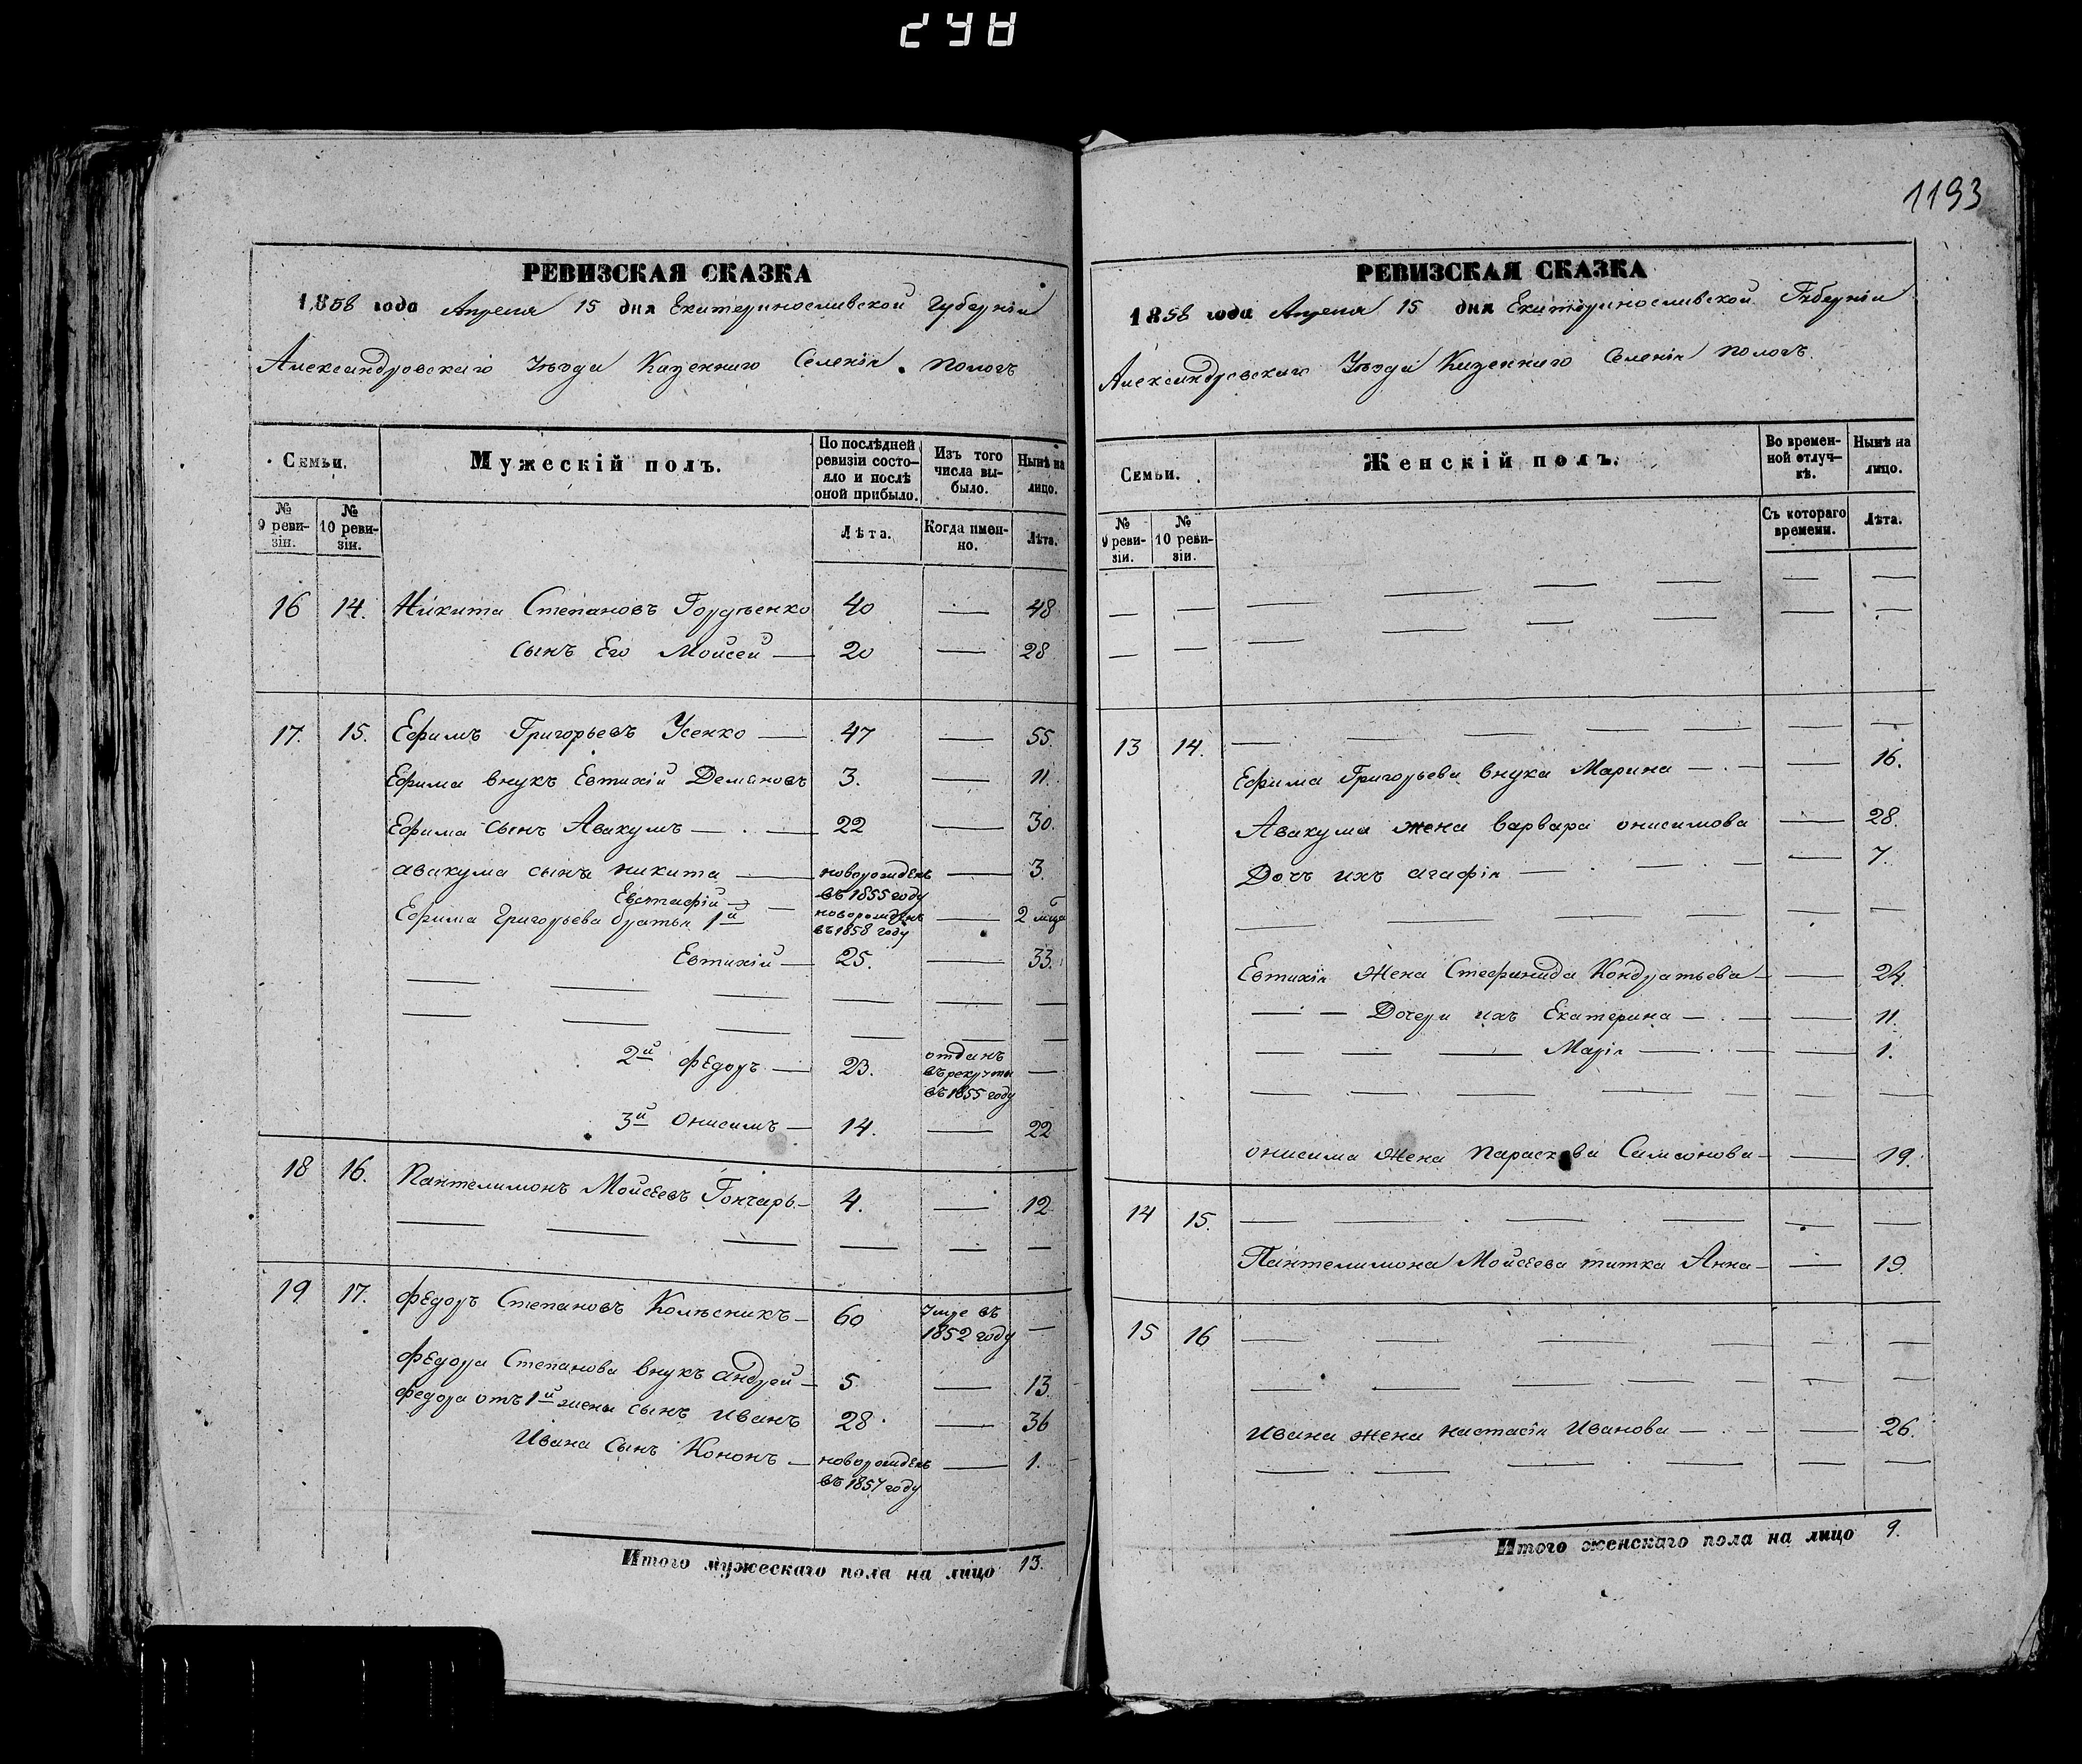 298
1193
РЕВИЗСКАЯ СКАЗКА
1858 года Апреля 15 дня Екатеринославской Губерніи
Александровскаго Уѣзда Казеннаго Селенія Пологъ
Семьи.
Мужескій полъ.
По послѣдней ревизіи состояло и послѣ оной прибыло.
Изъ того числа выбыло.
Нынѣ на лицо.
№ 9 ревизіи.
№ 10 ревизіи.
Лѣта.
Когда именно.
Лѣта.
16 14. Никита Степановъ Гордѣенко 40 — 48
сынъ Его Мойсей — 20 — 28
17. 15. Ефимъ Григорьевъ Усенко — 47 — 55.
Ефима внукъ Евтихій Демановъ 3. — 11.
Ефима сынъ Авакумъ — . — 22 — 30.
авакума сынъ никита — новорожденъ въ 1855 году — 3.
Евстафій — — новорожденъ въ 1858 году — 2 мца
Ефима Григорьева братья 1й
Евтихій — 25. — 33.
2й федоръ — 23. отданъ въ рекруты въ 1855 году —
3й онисимъ — 14. — 22
18 16. Пантелимонъ Мойсеевъ Гончаръ — 4. — 12
19 17. федоръ Степановъ Колѣсникъ — 60 Умре въ 1852 году —
федора Степанова внукъ андрей — 5 — 13.
федора отъ 1й жены сынъ иванъ 28 — 36
Ивана сынъ Кононъ — новорожденъ въ 1857 году — 1.
Итого мужескаго пола на лицо 13.
РЕВИЗСКАЯ СКАЗКА
1858 года Апреля 15 дня Екатеринославской Губерніи
Александровскаго Уѣзда Казеннаго Селенія Пологъ.
Семьи.
Женскій полъ.
Во временной отлучкѣ.
Нынѣ на лицо.
№ 9 ревизіи.
№ 10 ревизіи.
Съ котораго времени.
Лѣта.
13 14.
Ефима Григорьева внука Марина — . — — 16.
Авакума жена варвара онисимова — 28.
Дочъ ихъ агафія — . — . — — 7.
Евтихія жена Стефанида Кондратьева — — 24.
— — Дочери ихъ Екатерина — . — — 11.
— — — — Марія — . — — 1.
онисима жена параскева Самсонова — — 19.
14 15.
Пантелимона Мойсеева титка Анна — — 19
15 16
ивана жена настасія Иванова — . — — 26.
Итого женскаго пола на лицо 9.